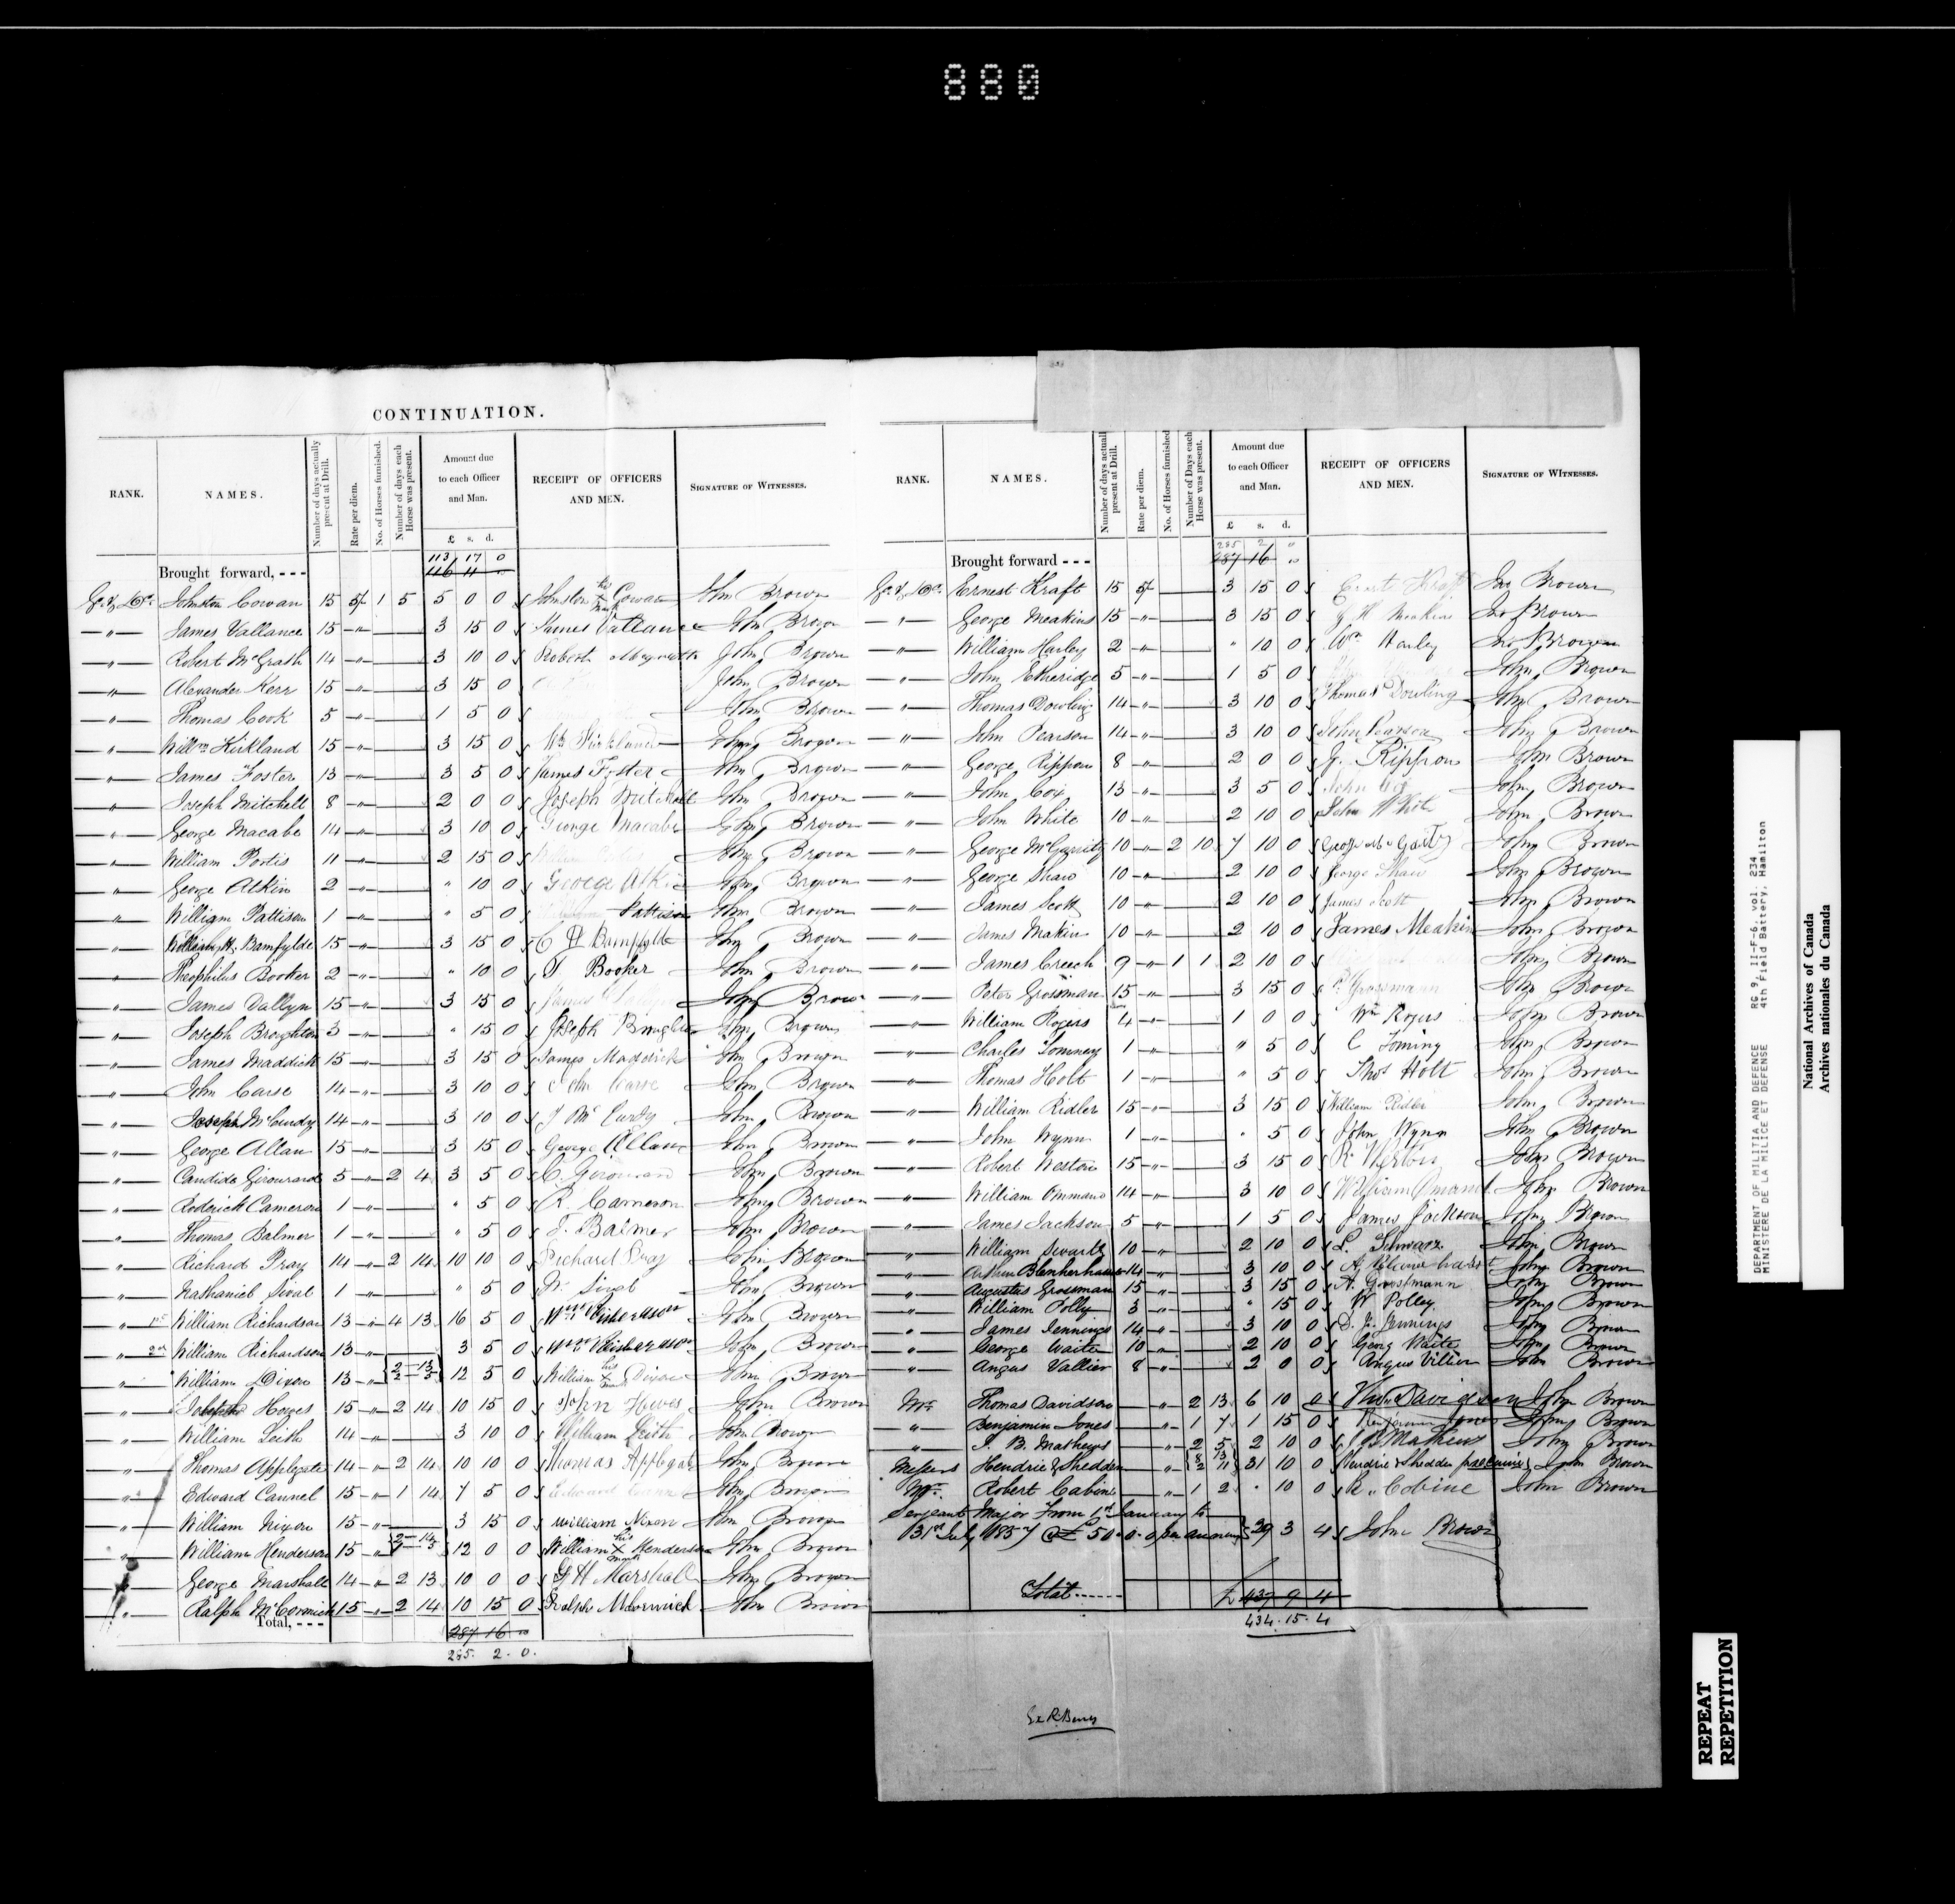 880
CONTINUATION.
RANK. NAMES. Number of days actually present at Drill. Rate per diem. No. of Horses furnished. Number of days each Horse was present. Amount due to each Officer and Man. £ s. d. RECEIPT OF OFFICERS AND MEN. SIGNATURE OF WITNESSES.
113 17 0
Brought forward, - - - 116 11 0
Johnston Cowan 15 5/ 1 5 5 0 0 Johnston his X mark Cowan John Brown
—"— James Vallance 15 —"— 3 15 0 James Vallance John Brown
—"— Robert McGrath 14 —"— 3 10 0 Robert John Brown
—"— Alexander Kerr 15 —"— 3 15 0 John Brown
—"— Thomas Cook 5 —"— 1 5 0 John Brown
—"— Willm Kirkland 15 —"— 3 15 0 Wm Kirkland John Brown
—"— James Foster 13 —"— 3 5 0 James Foster John Brown
—"— Joseph Mitchell 8 —"— 2 0 0 Joseph Mitchell John Brown
—"— George Macabe 14 —"— 3 10 0 George Macabe John Brown
—"— William Portis 11 —"— 2 15 0 John Brown
—"— George Atkin 2 —"— " 10 0 George Atkin John Brown
—"— William Pattison 1 —"— " 5 0 William Pattison John Brown
—"— Bamfylde 15 —"— 3 15 0 C H Bampfylde John Brown
—"— Theophilus Booker 2 —"— " 10 0 T Booker John Brown
—"— James Dallyn 15 —"— 3 15 0 James Dallyn John Brown
—"— Joseph Broughton 3 —"— " 15 0 Joseph Broughton John Brown
—"— James Maddick 15 —"— 3 15 0 James Maddick John Brown
—"— John Carse 14 —"— 3 10 0 John Carse John Brown
—"— Joseph McCurdy 14 —"— 3 10 0 J McCurdy John Brown
—"— George Allan 15 —"— 3 15 0 George Allan John Brown
—"— Candide Girourard 5 —"— 2 4 3 5 0 C. Girouard John Brown
—"— Roderick Cameron 1 —"— " 5 0 R. Cameron John Brown
—"— Thomas Balmer 1 —"— " 5 0 T. Balmer John Brown
—"— Richard Pray 14 —"— 2 14 10 10 0 Richard Pray John Brown
—"— Nathaniel Sivel 1 —"— " 5 0 N. Sivel John Brown
—"— 1st William Richardson 13 —"— 4 13 16 5 0 Wm Richardson John Brown
—"— 2nd William Richardson 13 —"— 3 5 0 Wm Richardson John Brown
—"— William Dixon 13 —"— 2 — 13 2 — 5 12 5 0 William his X mark Dixon John Brown
—"— Howes 15 —"— 2 14 10 15 0 John Howes John Brown
—"— William Leith 14 —"— 3 10 0 William Leith John Brown
—"— Thomas Applegate 14 —"— 2 14 10 10 0 Thomas Applegate John Brown
—"— Edward Cannel 15 —"— 1 14 7 5 0 Edward John Brown
—"— William Nixon 15 —"— 3 15 0 William Nixon John Brown
—"— William Henderson 15 —"— 12 0 0 William his X mark Henderson John Brown
—"— George Marshall 14 —"— 2 13 10 0 0 G H Marshall John Brown
—"— Ralph McCormick 15 —"— 2 14 10 15 0 Ralph McCormick John Brown
Total, - - - 287 16 0
285. 2. 0.
RANK. NAMES. Number of days actually present at Drill. Rate per diem. No. of Horses furnished Number of Days each Horse was present. Amount due to each Officer and Man. £ s. d. RECEIPT OF OFFICERS AND MEN. SIGNATURE OF WITNESSES.
285 2 "
Brought forward - - - 287 16 "
Ernest Kraft 15 5/ 3 15 0 Ernst Kraft Jno Brown
—"— George Meakins 15 —"— 3 15 0 G H Meakins Jno Brown
—"— William Harley 2 —"— " 10 0 Wm Harley Jno Brown
—"— John Etheridge 5 —"— 1 5 0 John Brown
—"— Thomas Dowling 14 —"— 3 10 0 Thomas Dowling John Brown
—"— John Pearson 14 —"— 3 10 0 John Pearson John Brown
—"— George Rippon 8 —"— 2 0 0 G. Rippon John Brown
—"— John Cox 13 —"— 3 5 0 John Cox John Brown
—"— John White 10 —"— 2 10 0 John White John Brown
—"— George McGarrity 10 —"— 2 10 7 10 0 John Brown
—"— George Shaw 10 —"— 2 10 0 George Shaw John Brown
—"— James Scott 10 —"— 2 10 0 James Scott John Brown
—"— James Makin 10 —"— 2 10 0 James Meakin John Brown
—"— James Creech 9 —"— 1 1 2 10 0 John Brown
—"— Peter Grossman 15 —"— 3 15 0 P. Grossmann John Brown
—"— William Rogers 4 —"— 1 0 0 Wm Rogers John Brown
—"— Charles Tominey 1 —"— " 5 0 C Toming John Brown
—"— Thomas Holt 1 —"— " 5 0 Thos Holt John Brown
—"— William Ridler 15 —"— 3 15 0 William Ridler John Brown
—"— John Wynn 1 —"— " 5 0 John Wynn John Brown
—"— Robert Weston 15 —"— 3 15 0 R. Weston John Brown
—"— William Ommand 14 —"— 3 10 0 William Omand John Brown
—"— James Jackson 5 —"— 1 5 0 James Jackson John Brown
—"— William Swartz 10 —"— 2 10 0 L. Schwarz John Brown
—"— Arthur 14 —"— 3 10 0 John Brown
—"— Augustus Grossman 15 —"— 3 15 0 A. Grossmann John Brown
—"— William Polly 3 —"— " 15 0 W Polley John Brown
—"— James Jennings 14 —"— 3 10 0 Jennings John Brown
—"— George Waite 10 —"— 2 10 0 Georg Waite John Brown
—"— Angus Vallier 8 —"— 2 0 0 Angus John Brown
Mr. Thomas Davidson —"— 2 13 6 10 0 Thos Davidson John Brown
—"— Benjamin Jones —"— 1 7 1 15 0 Benjamin Jones John Brown
—"— J. B. Mathews —"— 2 5 2 10 0 J B Mathews John Brown
Messrs Hendrie & Shedden —"— 8 13 2 11 31 10 0 Hendrie & Shedden John Brown
Mr. Robert Cabine —"— 1 2 " 10 0 R. Cobine John Brown
Sergeant Major From 1st January to
31st July 1857 @ £50. 0. 0 per annum 29 3 4 John Brown
Total ------ £ 437 9 4
434. 15. 4
DEPARTMENT OF MILITIA AND DEFENCE RG 9, II-F-6, vol. 234
MINISTERE DE LA MILICE ET DEFENSE 4th Field Battery, Hamilton
National Archives of Canada
Archives nationales du Canada
REPEAT
REPETITION